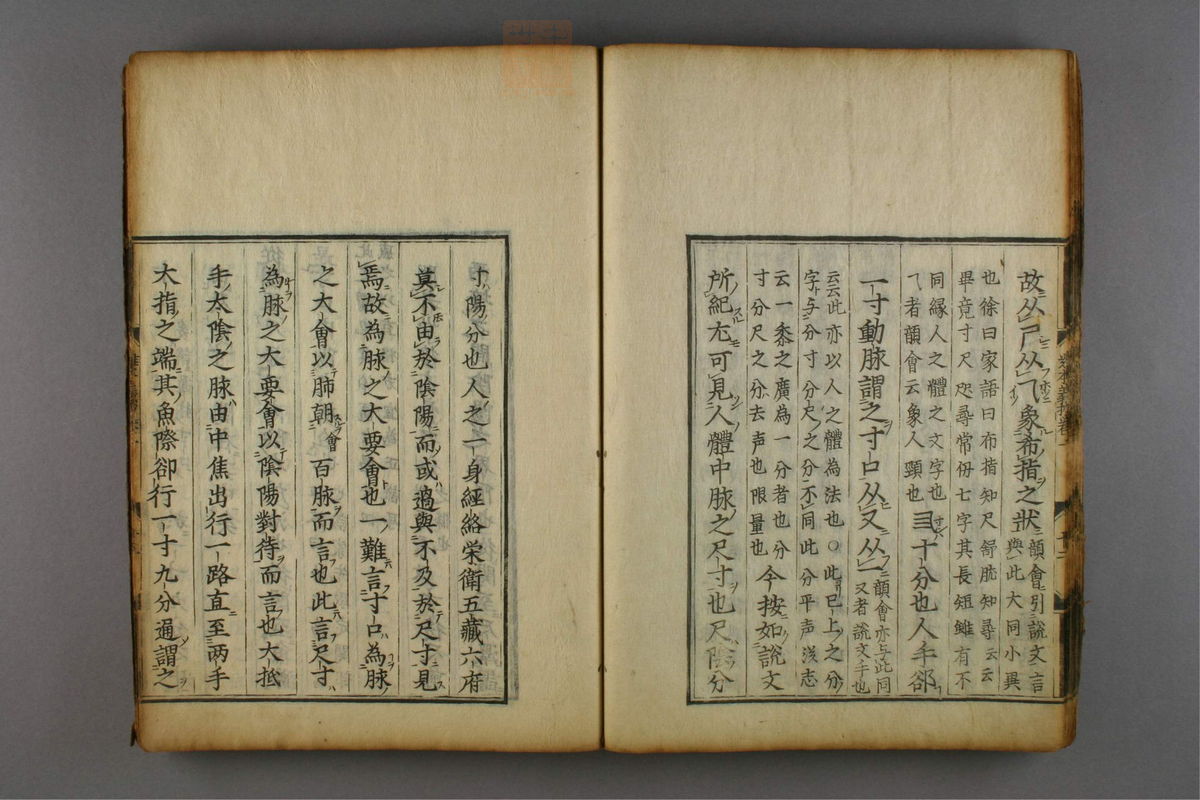 故从尸从乁象布指之状
韻會引說文言
與此大同小異
也徐曰家語曰布指知尺舒肱知尋云云
畢竟寸尺咫尋常仞七字其長短雖有不
同緣人之體之文字也
十分也人手郤
乁者韻會云象人頸也
一寸動脉謂之寸口从又从一
韻會亦与此同
又者說文手也
云云此亦以人之體為法也○此已上之分
字与分寸分尺之分不同此分平声浅志
云一黍之廣為一分者也分
寸分尺之分去声也限量也
今按如說文
所紀尤可見人體中脉之尺寸也尺陰分
寸陽分也人之一身經絡栄衛五藏六府
莫不由於陰陽而或過與不及於尺寸見
焉故為脉之大要會也一難言寸口為脉
之大會以肺朝會百脉而言也此言尺寸
為脉之大要會以陰陽對待而言也大抵
手太陰之脉由中焦出行一路直至两手
大指之端其魚際卻行一寸九分通謂之